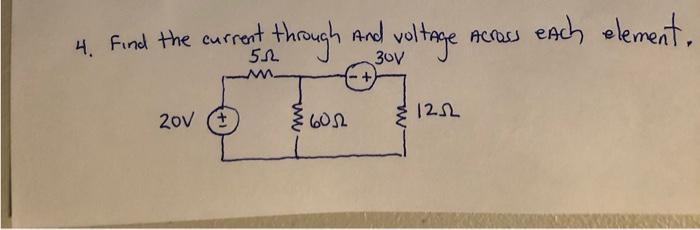 4. Find the current through And voltage Across eAch element.
5Ω 30V
- +
20V ± 60Ω 12Ω